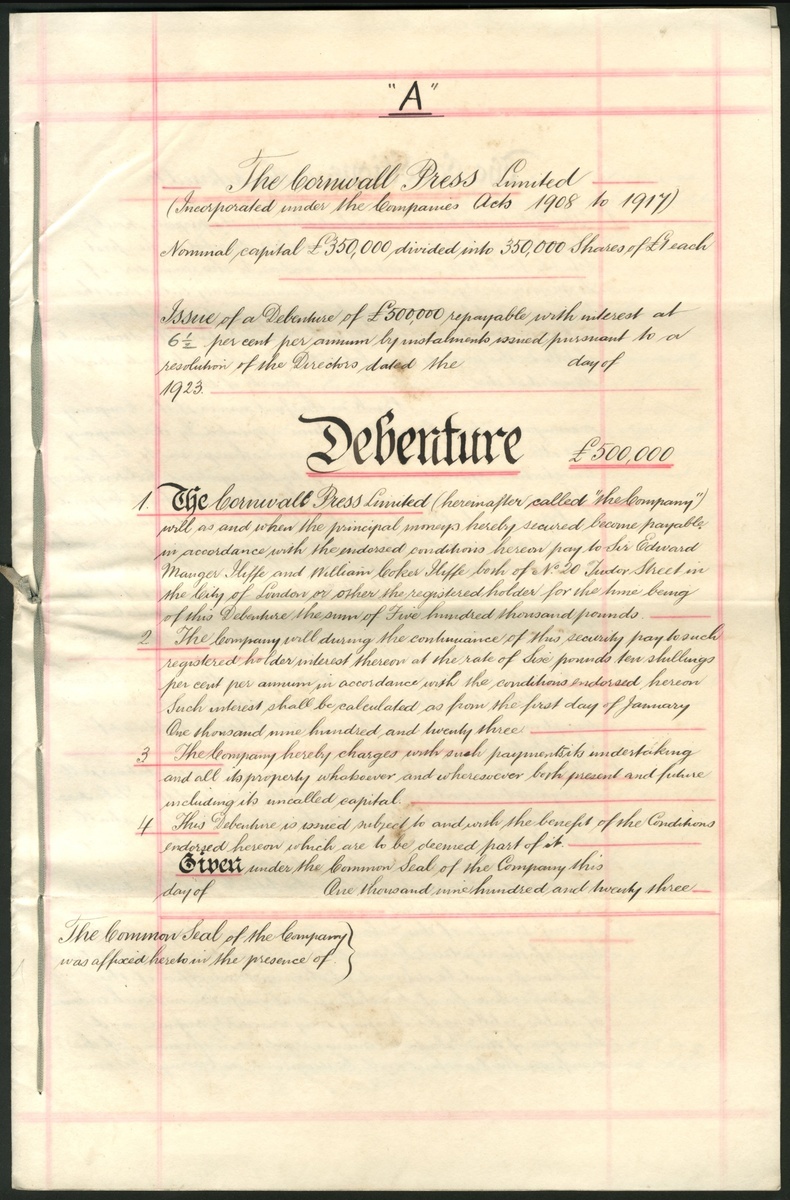 "A"
The Cornwall Press Limited
(Incorporated under the Companies Acts 1908 to 1917)
Nominal capital £350,000 divided into 350,000 Shares of £1 each
Issue of a Debenture of £500,000 repayable with interest at
6½ per cent per annum by instalments issued pursuant to a
resolution of the Directors dated the day of
1923.
Debenture £500,000
1. The Cornwall Press Limited (hereinafter called "the Company")
will as and when the principal moneys hereby secured become payable
in accordance with the endorsed conditions hereon pay to Sir Edward
Mauger Iliffe and William Coker Iliffe both of No 20 Tudor Street in
the City of London or other the registered holder for the time being
of this Debenture the sum of Five hundred thousand pounds.
2 The Company will during the continuance of this security pay to such
registered holder interest thereon at the rate of Six pounds ten shillings
per cent per annum in accordance with the conditions endorsed hereon
Such interest shall be calculated as from the first day of January
One thousand nine hundred and twenty three
3 The Company hereby charges with such payments its undertaking
and all its property whatsoever and wheresoever both present and future
including its uncalled capital.
4 This Debenture is issued subject to and with the benefit of the Conditions
endorsed hereon which are to be deemed part of it.
Given under the Common Seal of the Company this
day of One thousand nine hundred and twenty three
The Common Seal of the Company
was affixed hereto in the presence of }